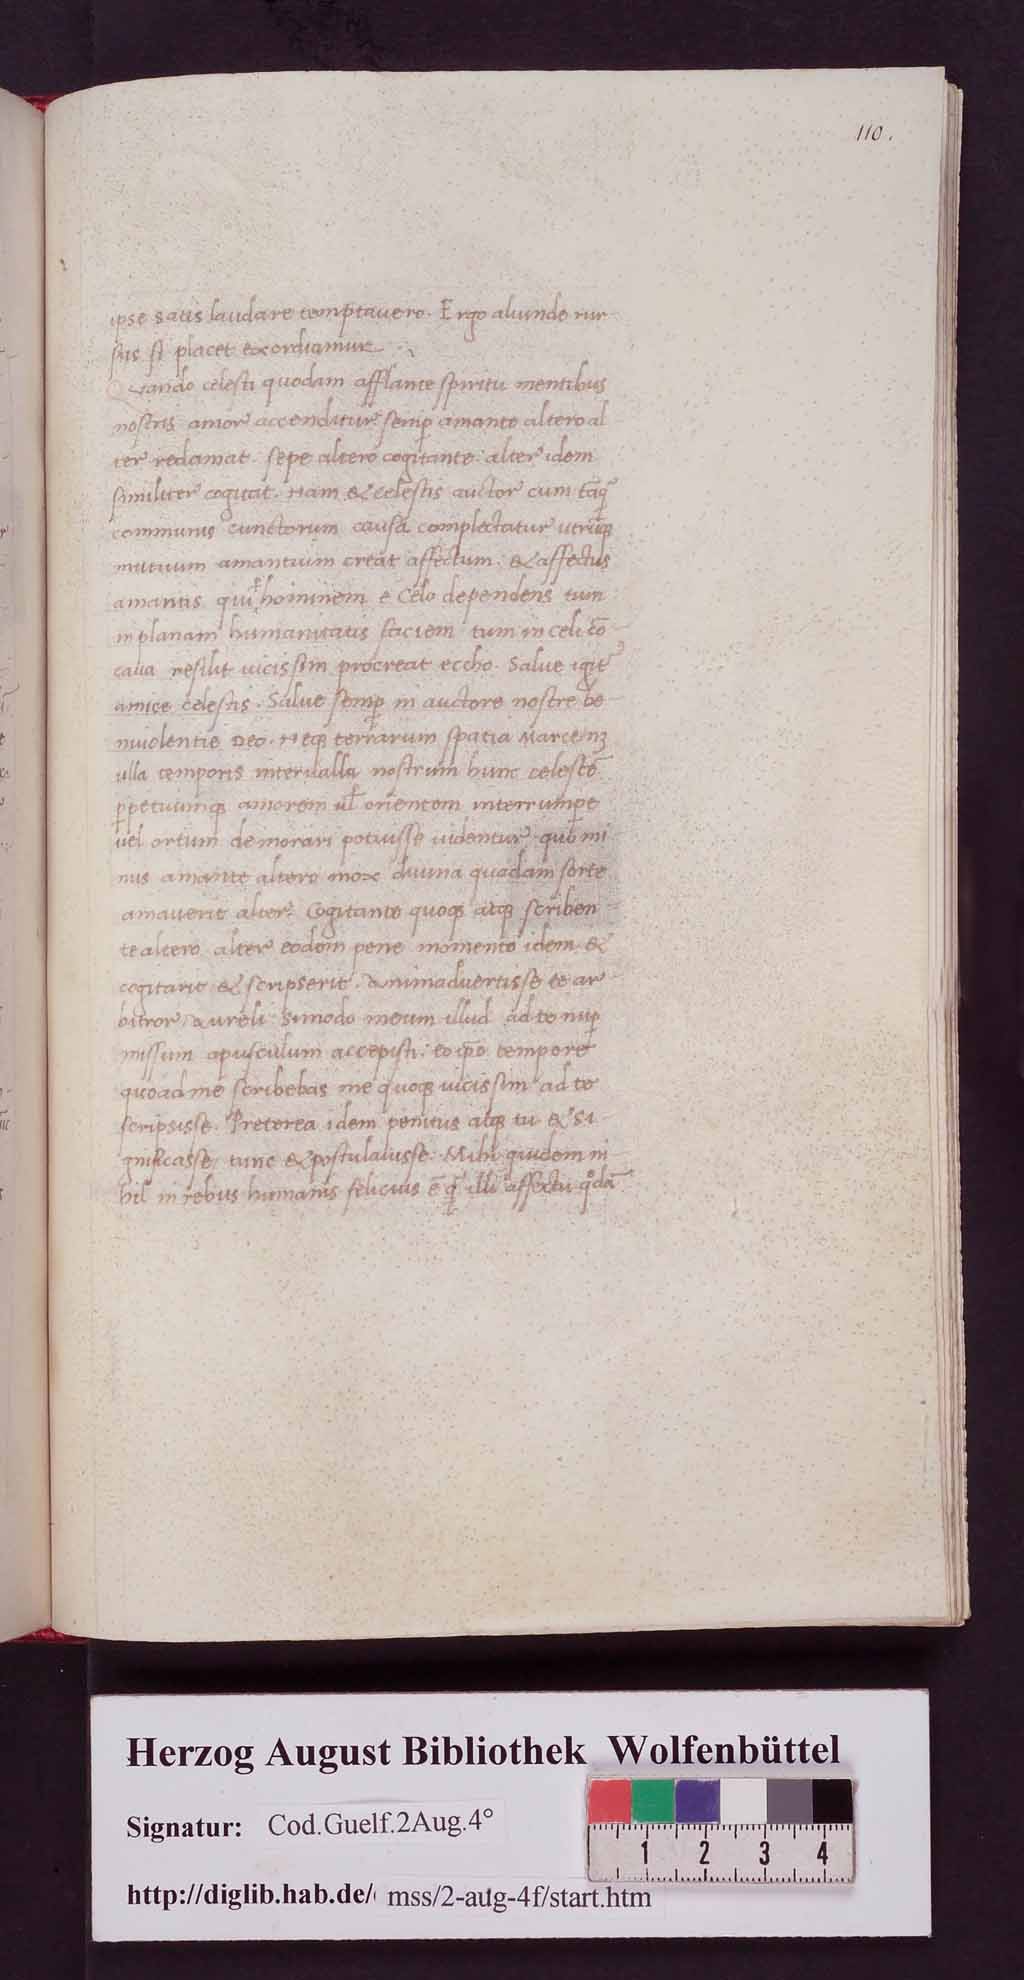 110.
ipse satis laudare temptavero. Ergo aliunde rur
sus si placet exordiamur
Quando celesti quodam afflante spiritu mentibus
nostris amor accenditur semp̱ amante altero al
ter redamat. sepe altero cogitante: alter idem
similiter cogitat. Nam & celestis auctor cum tāq̄
communis cunctorum causa complectatur utrūq̨
mutuum amantium creat affectum: & affectus
amantis qui hominem e Celo dependens tum
in planam humanitatis faciem tum in celi cō
cava resilit vicissim procreat eccho. Salve igit̄
amice celestis. Salve semp̱ in auctore nostre be
nivolentie Deo. Neq̨ terrarum spatia Marce nꝫ
ulla temporis intervalla nostrum hunc celestē
p̱petuumq̨ amorem ul̄ orientem interrumpe
vel ortum demorari potuisse videntur quo mi
nus amante altero mox divina quadam sorte
amaverit alter. Cogitante quoq̨ atq̨ scriben
te altero alter eodem pene momento idem &
cogitarit & scripserit. Animadvertisse te ar
bitror Aureli simodo meum illud ad te nup̱
missum opusculum accepisti: eo ip̄o tempore
quo ad me scribebas me quoq̨ vicissim ad te
scripsisse. Preterea idem penitus atq̨ tu & si
gnificasse tunc & postulavisse. Mihi quidem ni
hil in rebus humanis felicius ē q̄ illi affectu q̊dā
Herzog August Bibliothek Wolfenbüttel
Signatur: Cod.Guelf.2Aug.4°
1 2 3 4
http://diglib.hab.de/ mss/2-aug-4f/start.htm